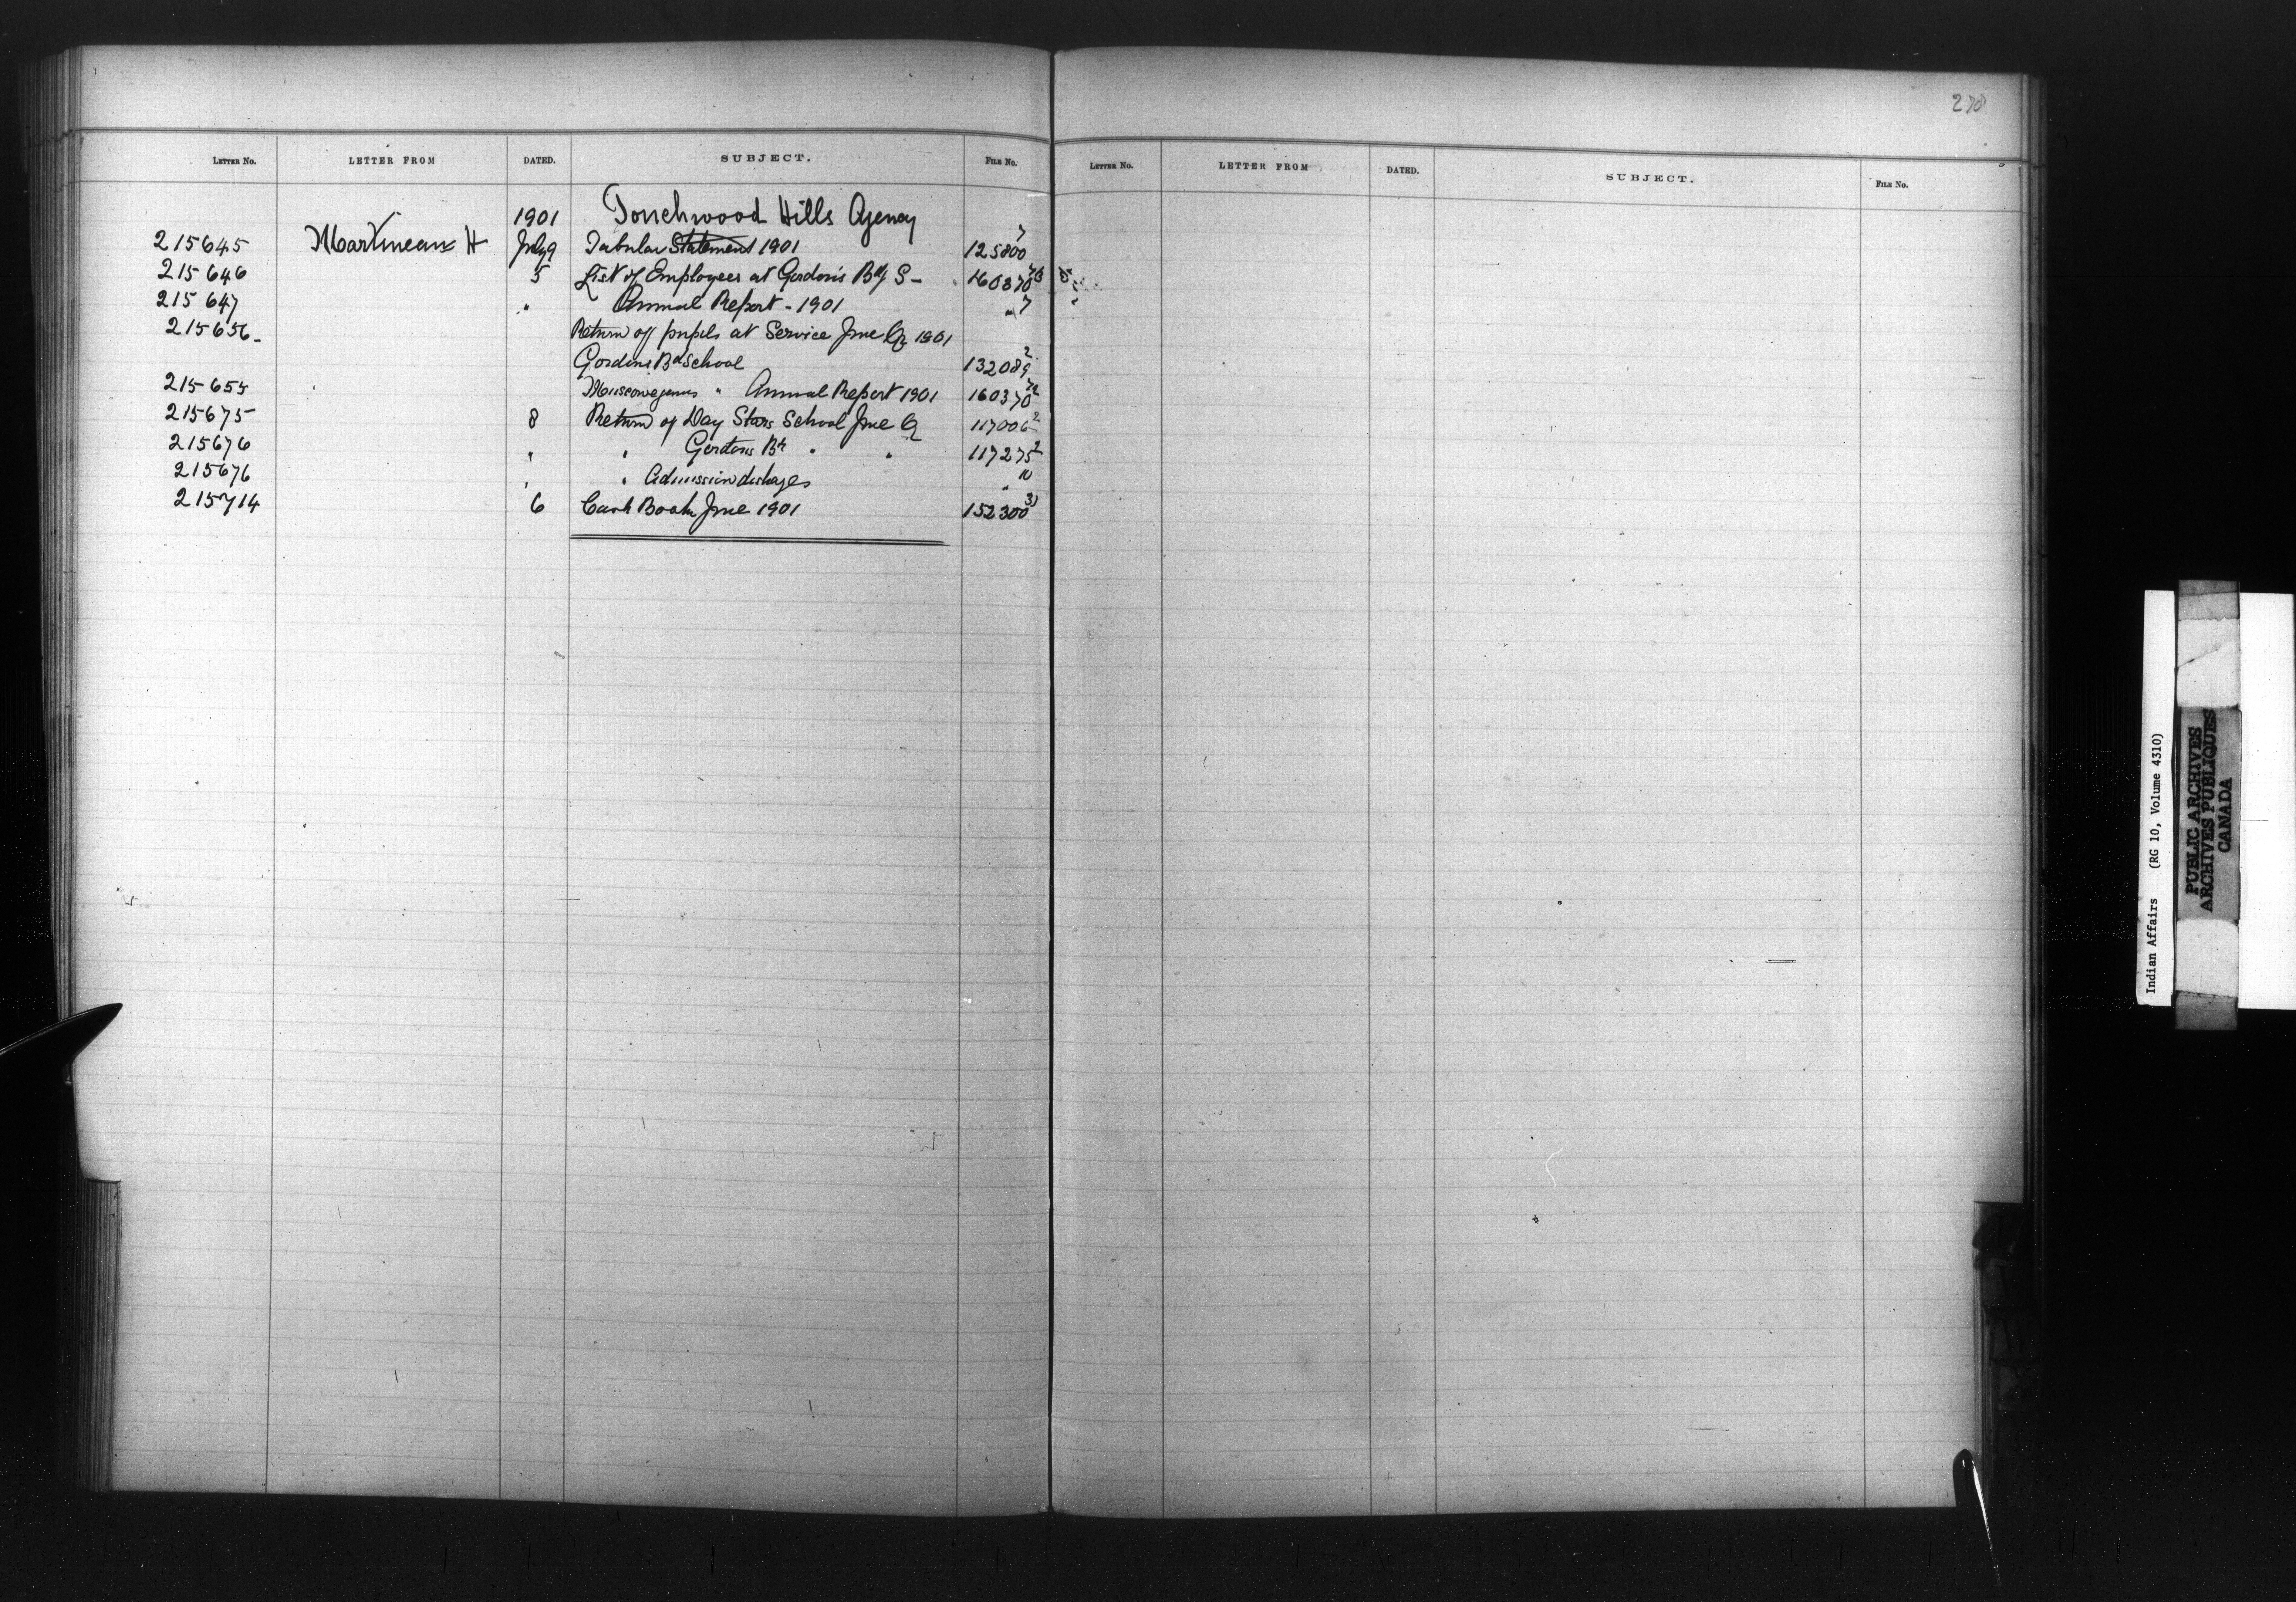 278
LETTER NO. LETTER FROM DATED. SUBJECT. FILE No.
LETTER NO. LETTER FROM DATED. SUBJECT. FILE No.
1901 Touchwood Hills Agency
215645 Martineau H July 9 Tabular Statement 1901 125800 7
215646 5 List of Employees at Gordon's Bdg S -
215647 " Annual Report - 1901 " 7
215656 - Return of pupils at Service June Qr 1901
Gordons Bd School 132089 2
215655 " Annual Report 1901 160370
215675 8 Return of Day Stars School June Q 117006 2
215676 " " Gordons Bd " " 117275 2
215676 " " Admission discharges " 10
215714 6 Cash Book June 1901 152300 31
Indian Affairs (RG 10, Volume 4310)
PUBLIC ARCHIVES
ARCHIVES PUBLIQUES
CANADA